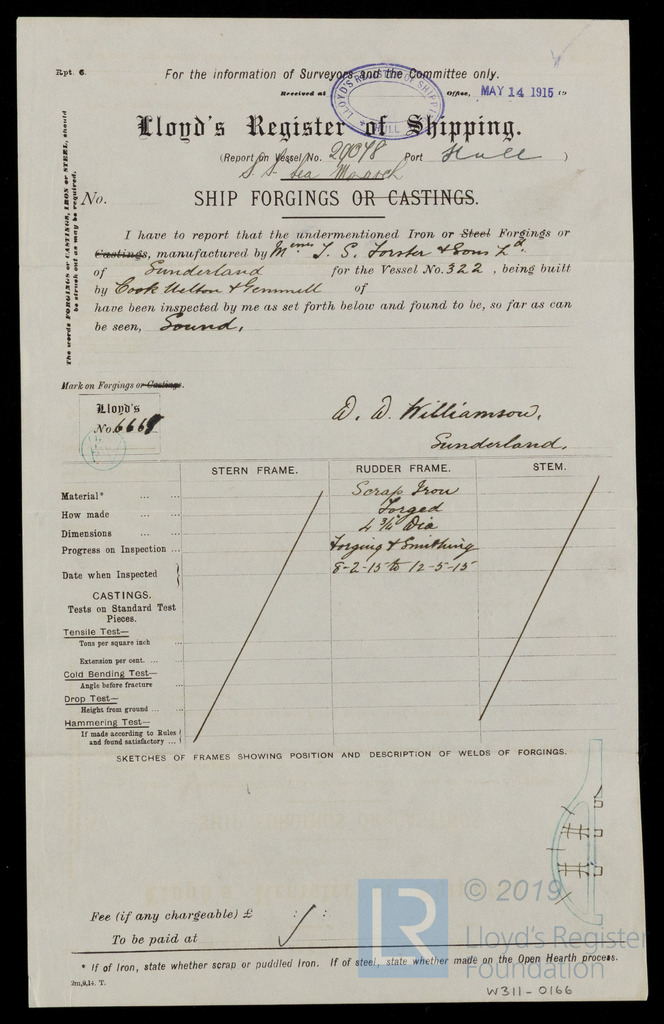 Rpt. 6.
For the information of Surveyors and the Committee only.
Received at Office, MAY 14 1915 19
LLOYD'S REGISTER OF SHIPPING
HULL
Lloyd's Register of Shipping.
(Report on Vessel No. 29078 Port Hull )
S.S. Sea Monarch
No. SHIP FORGINGS OR CASTINGS.
The words FORGINGS or CASTINGS, IRON or STEEL, should
be struck out as may be required.
I have to report that the undermentioned Iron or Steel Forgings or
Castings, manufactured by Messrs T. S. Forster & Sons Ld.
of Sunderland for the Vessel No. 322 , being built
by Cook Welton & Gemmell of
have been inspected by me as set forth below and found to be, so far as can
be seen, Sound.
Mark on Forgings or Castings.
Lloyd's
No. 6669
D. D. Williamson,
Sunderland.
STERN FRAME. RUDDER FRAME. STEM.
Material* ... ... Scrap Iron
How made ... ... Forged
Dimensions ... ... 4 3/4" Dia
Progress on Inspection ... Forging & Smithing
Date when Inspected 8-2-15 to 12-5-15
CASTINGS.
Tests on Standard Test
Pieces.
Tensile Test—
Tons per square inch ...
Extension per cent. ... ...
Cold Bending Test—
Angle before fracture ...
Drop Test—
Height from ground ... ...
Hammering Test—
If made according to Rules
and found satisfactory ...
SKETCHES OF FRAMES SHOWING POSITION AND DESCRIPTION OF WELDS OF FORGINGS.
Fee (if any chargeable) £ : :
To be paid at
* If of Iron, state whether scrap or puddled Iron. If of steel, state whether made on the Open Hearth process.
2m,9,14. T.
LR
© 2019
Lloyd's Register
Foundation
W311-0166